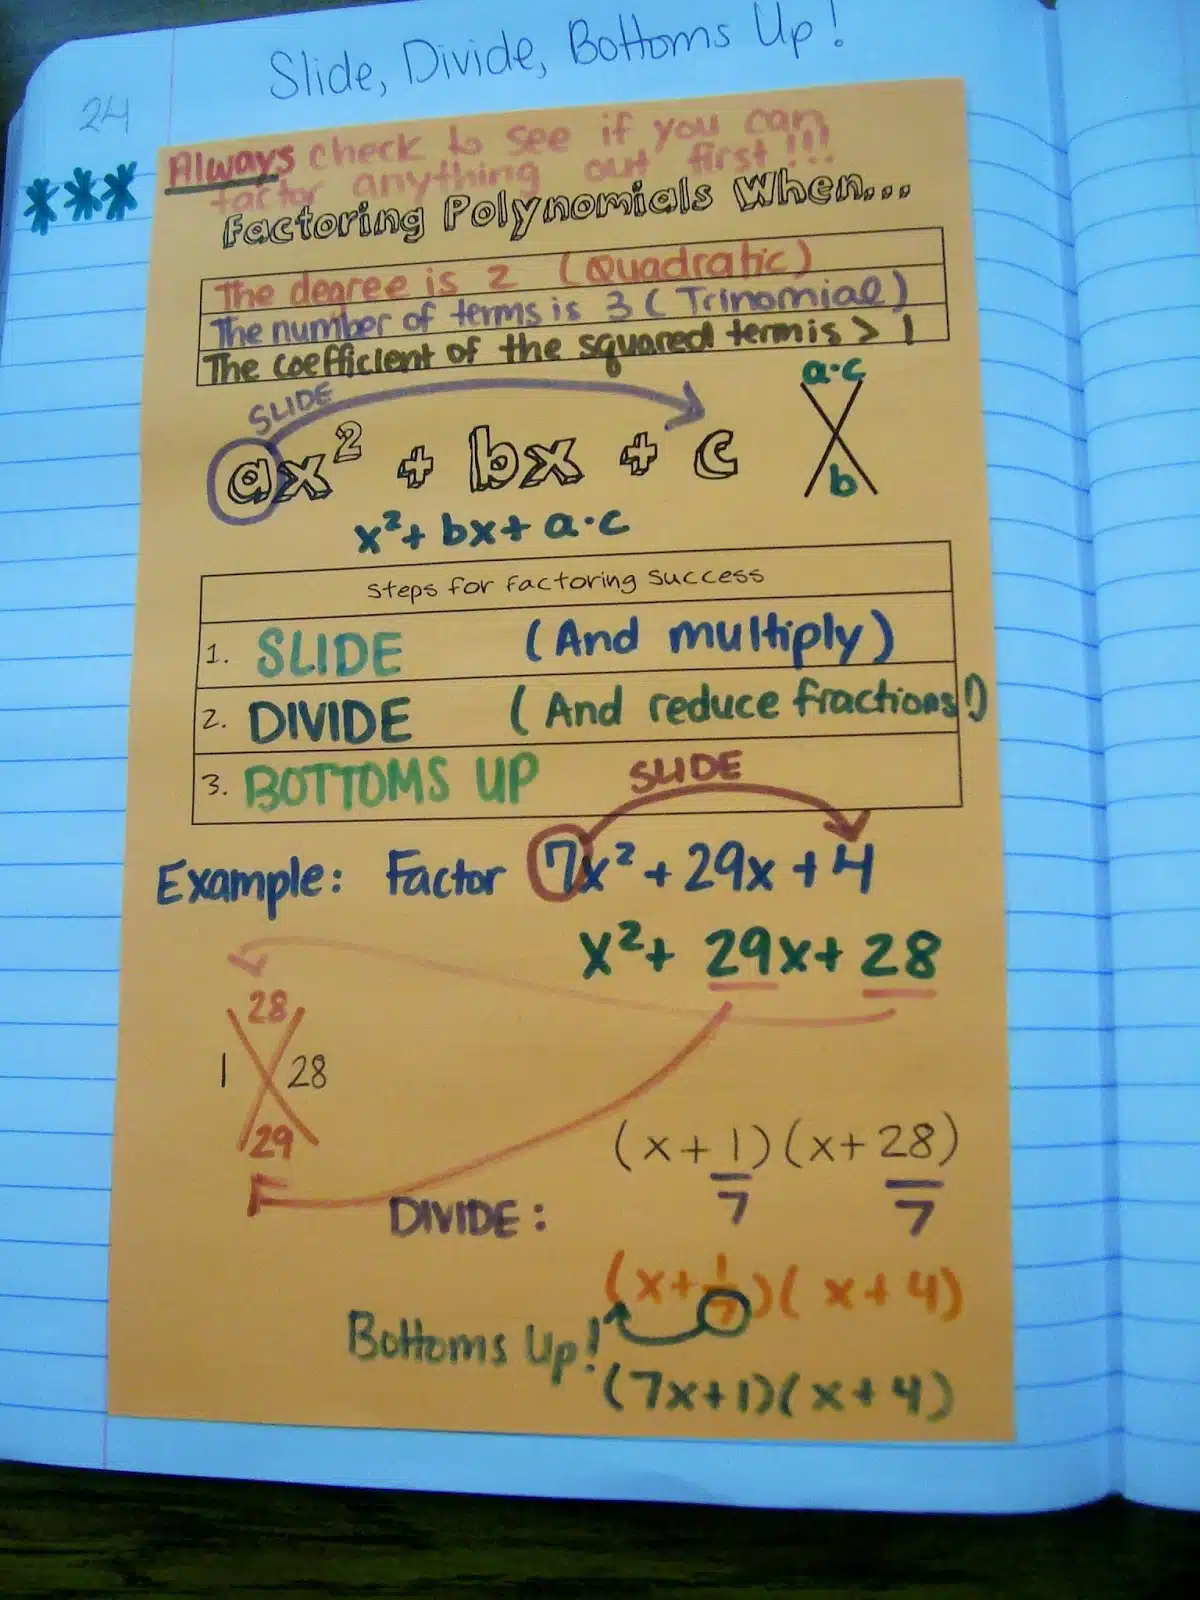 Slide, Divide, Bottoms Up!
24
*** Always check to see if you can
factor anything out first!!!
Factoring Polynomials When...
The degree is 2 (Quadratic)
The number of terms is 3 (Trinomial)
The coefficient of the squared term is > 1
SLIDE
a·c
ax² + bx + c
b
x² + bx + a·c
Steps for Factoring Success
1. SLIDE (And multiply)
2. DIVIDE (And reduce fractions!)
3. BOTTOMS UP
SLIDE
Example: Factor 7x² + 29x + 4
x² + 29x + 28
28
1 28
29
(x + 1/7)(x + 28/7)
DIVIDE:
(x + 1/7)(x + 4)
Bottoms Up!
(7x+1)(x+4)